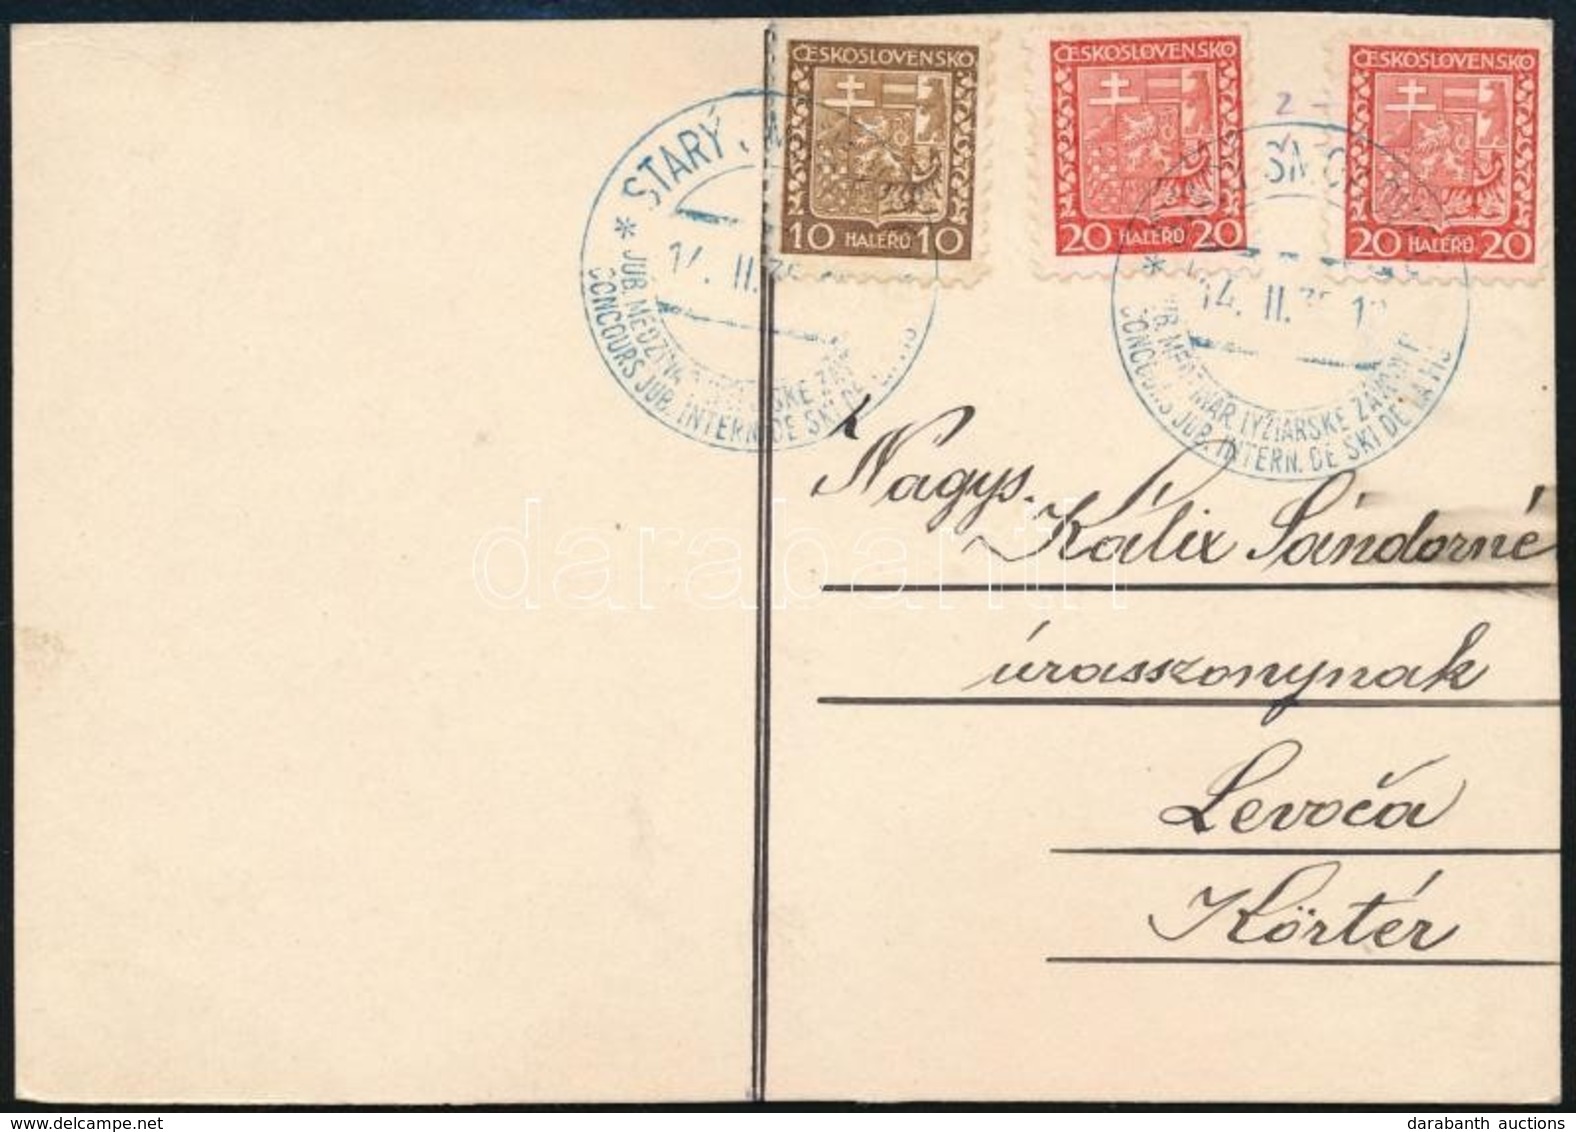 ČESKOSLOVENSKO
10 HALÉŘŮ 10
ČESKOSLOVENSKO
20 HALÉŘŮ 20
ČESKOSLOVENSKO
20 HALÉŘŮ 20
* STARÝ
14. II.
JUB. MEDZINÁR
CONCOURS JUB. INTERN. DE SKI DE
2 -
SMO
* 14. II.
LYŽIARSKE ZÁVODY
CONCOURS JUB. INTERN. DE SKI DE LA
Nagys.
Kálix Sándorné
úrasszonynak
Levoča
Körtér
darabanth
darabanth auctions